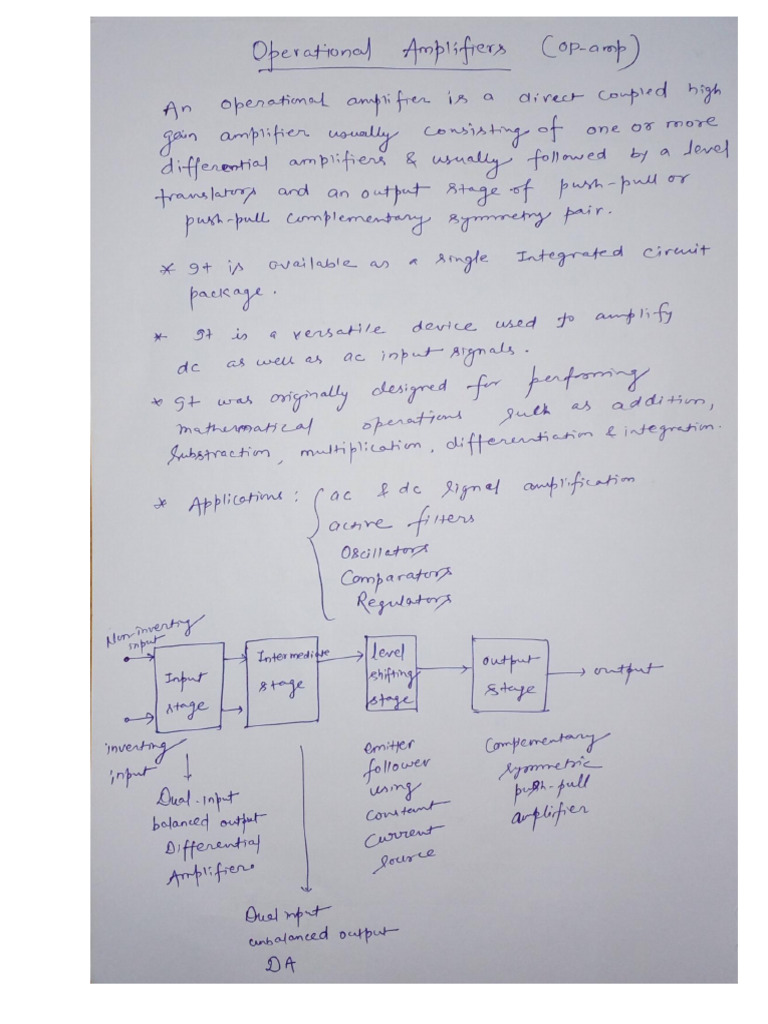 Operational Amplifiers (op-amp)
An operational amplifier is a direct coupled high
gain amplifier usually consisting of one or more
differential amplifiers & usually followed by a level
translators and an output stage of push-pull or
push-pull complementary symmetry pair.
* It is available as a single Integrated circuit
package.
* It is a versatile device used to amplify
dc as well as ac input signals.
* It was originally designed for performing
mathematical operations such as addition,
substraction, multiplication, differentiation & integration.
* Applications: ac & dc signal amplification
active filters
Oscillators
Comparators
Regulators
Non-inverting
input
Input
stage
Intermediate
stage
level
shifting
stage
output
stage
output
inverting
input
Dual-input
balanced output
Differential
Amplifier.
Dual input
unbalanced output
DA
emitter
follower
using
constant
current
source
Compementary
symmetric
push-pull
amplifier